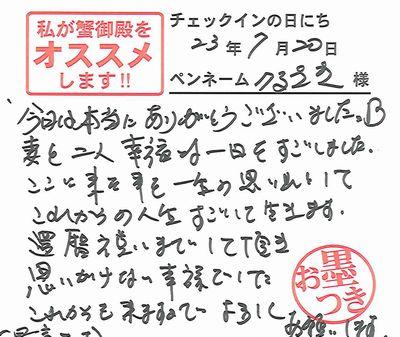 私が蟹御殿を
オススメ
します!!
チェックインの日にち
23年7月20日
ペンネーム 様
今日は本当にありがとうございました。
妻と二人幸福な一日をすごしました.
ここに来た事を一生の思い出として
これからの人生すごして
還暦 までして頂き
思いかけない幸福でした
これからも ますので よろしく
お願いします.
お墨つき